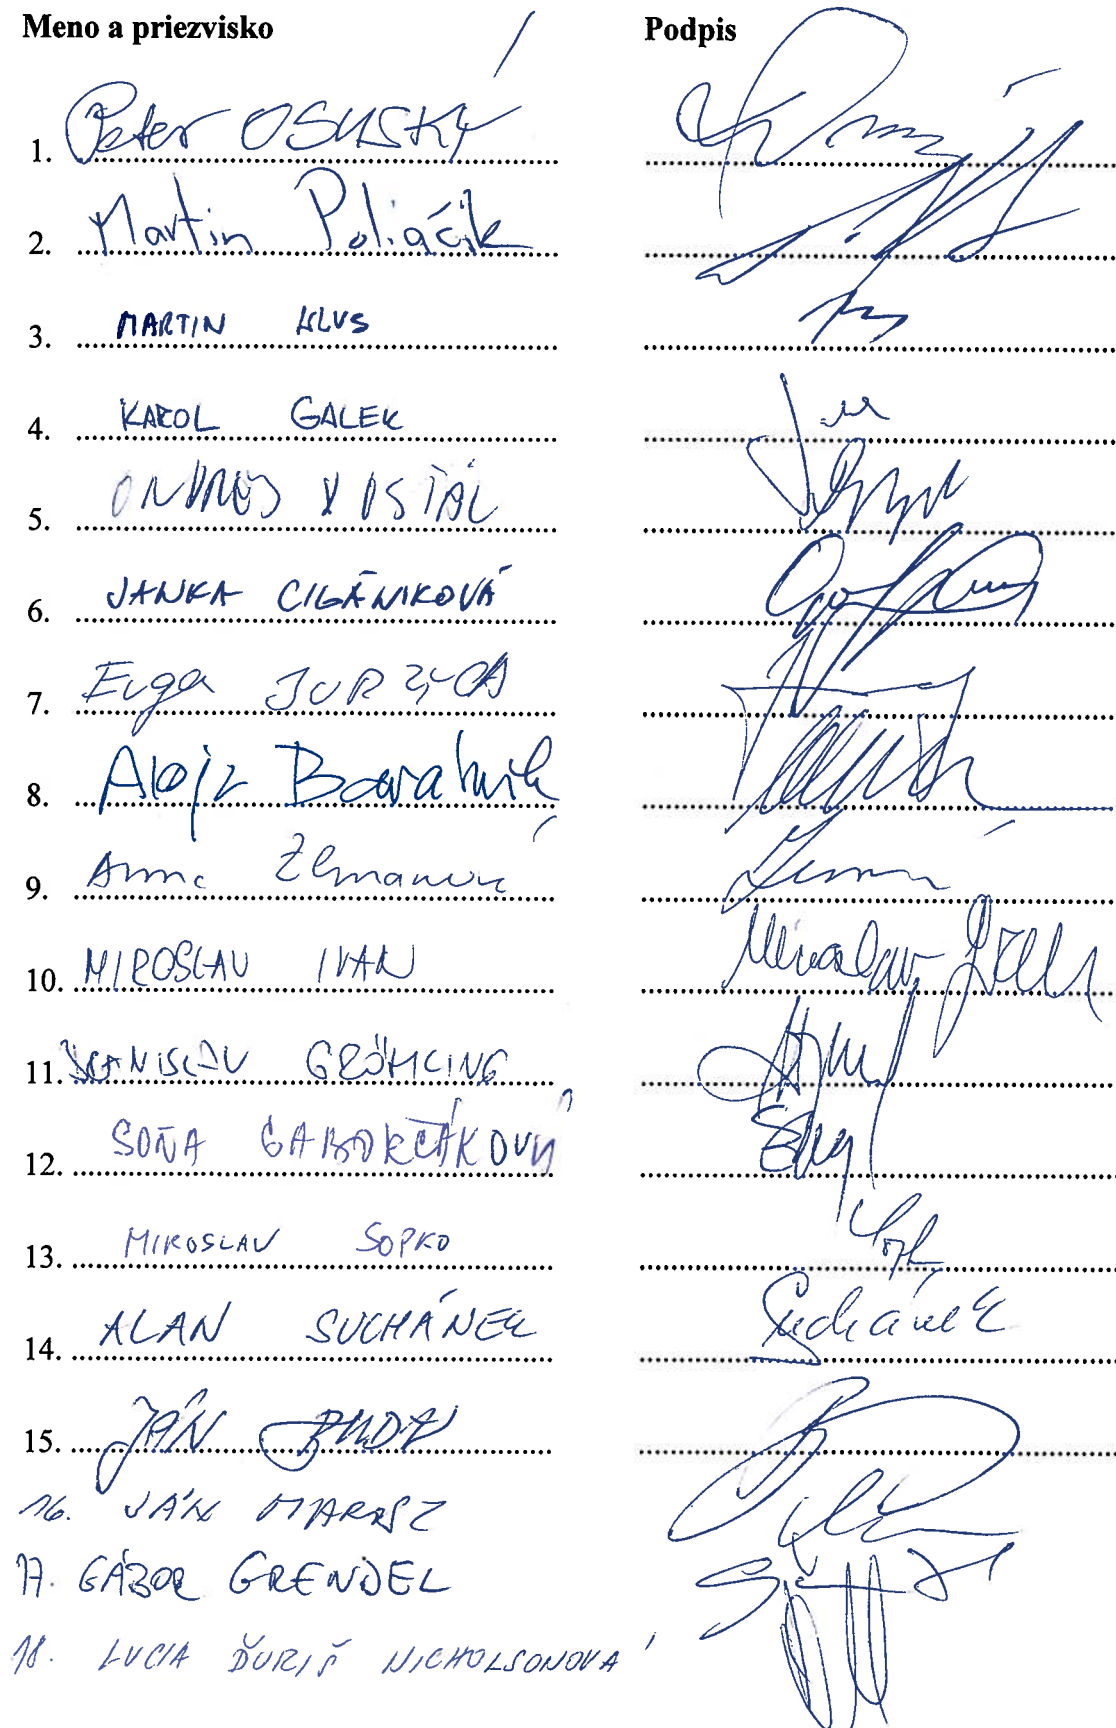 Meno a priezvisko Podpis
1. Peter OSUSKÝ
2. Martin Poliačik
3. MARTIN KLUS
4. KAROL GALEK
5. ONDREJ DOSTÁL
6. JANKA CIGÁNIKOVÁ
7. Euge JURZYCA
8. Alojz Baránik
9. Anna Zemanová
10. MIROSLAV IVAN Miroslav Ivan
11. STANISLAV GRÖHLING
12. SOŇA GABORČÁKOVÁ
13. MIROSLAV SOPKO
14. ALAN SUCHÁNEK Suchánek
15. JÁN BUDAJ
16. JÁN MAROSZ
17. GÁBOR GRENDEL
18. LUCIA ĎURIŠ NICHOLSONOVÁ